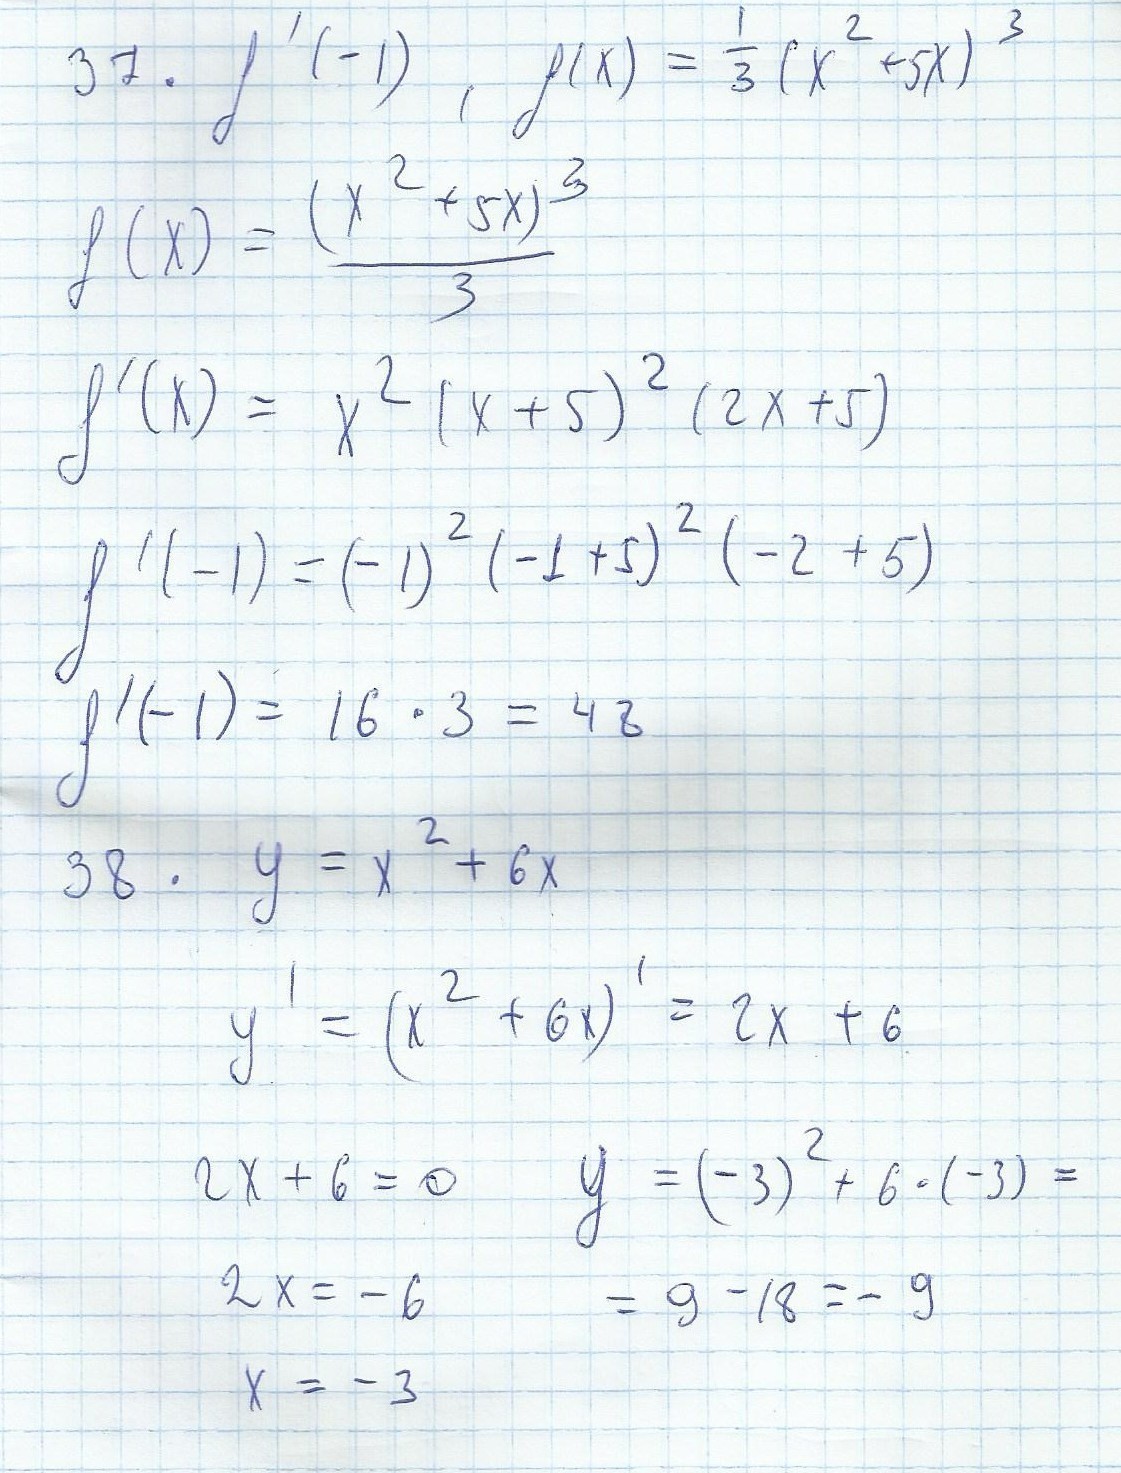 37. f'(-1), f(x) = 1/3 (x² + 5x)³
f(x) = (x² + 5x)³ / 3
f'(x) = x² (x + 5)² (2x + 5)
f'(-1) = (-1)² (-1 + 5)² (-2 + 5)
f'(-1) = 16 · 3 = 48
38. y = x² + 6x
y' = (x² + 6x)' = 2x + 6
2x + 6 = 0
2x = -6
x = -3
y = (-3)² + 6·(-3) =
= 9 - 18 = -9